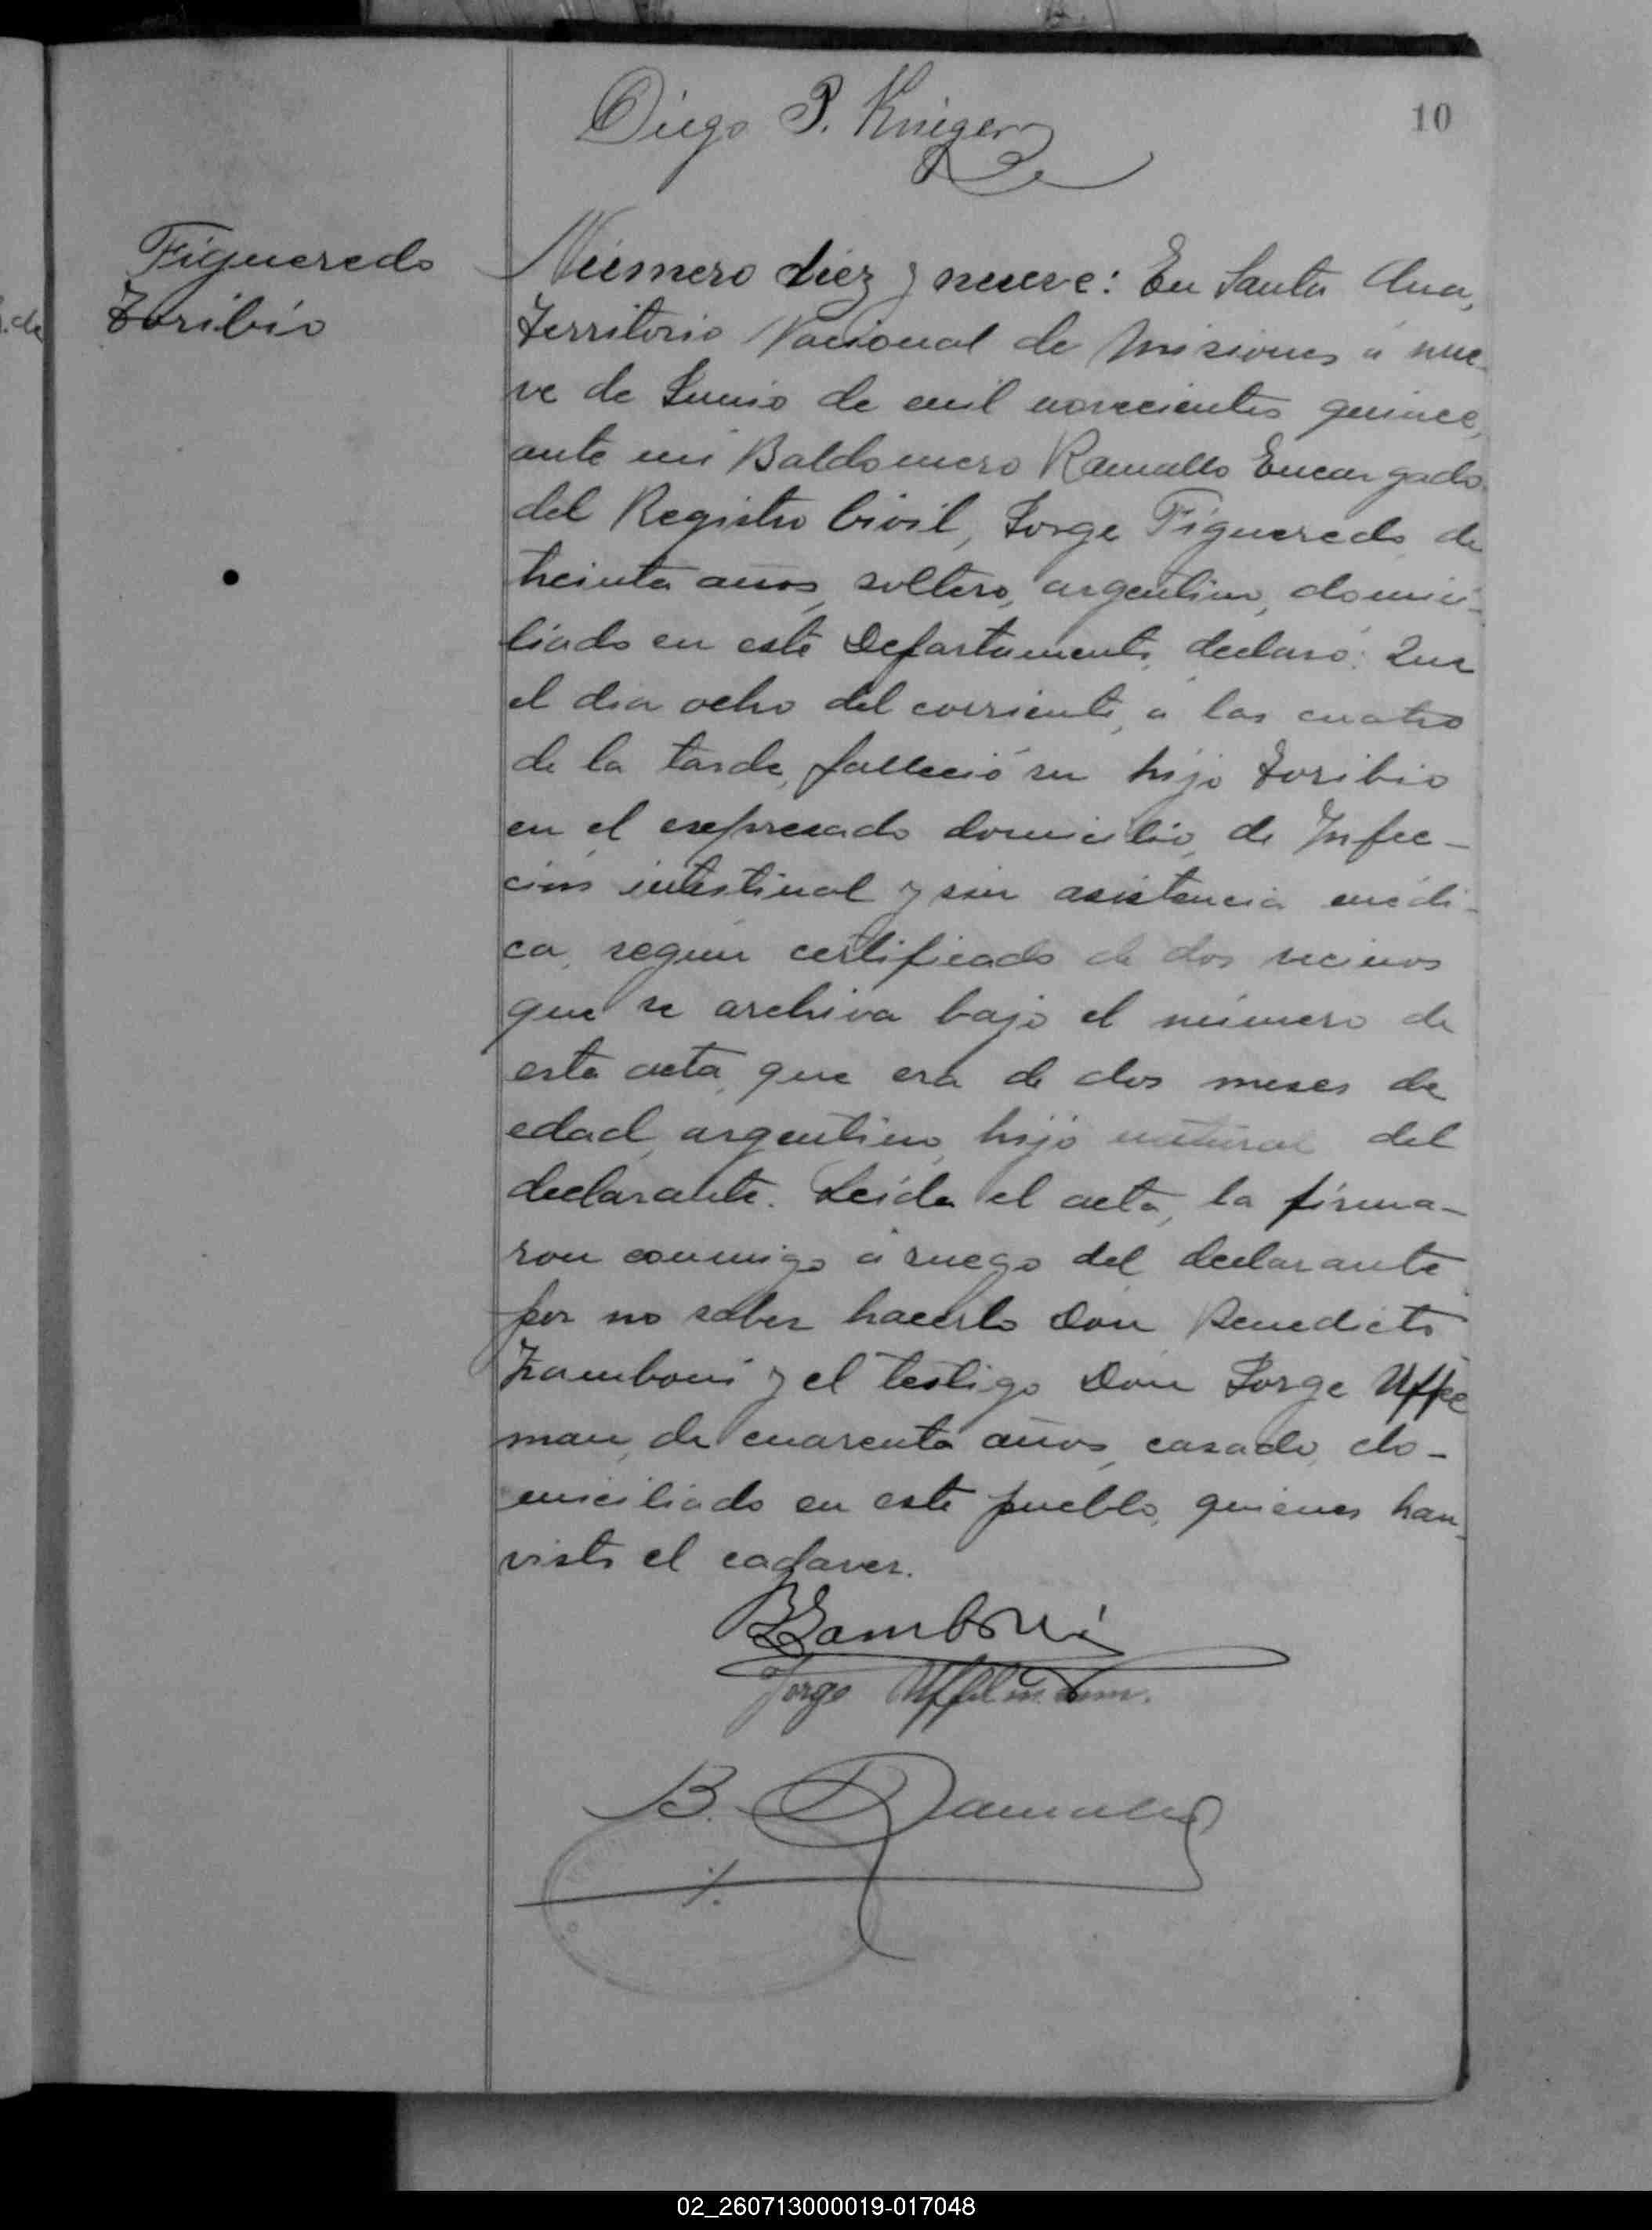 Diego P. Krieger
10
Figueredo
Toribio
Número diez y nueve: En Santa Ana,
Territorio Nacional de Misiones á nue-
ve de Junio de mil novecientos quince,
ante mi Baldomero Ramallo Encargado
del Registro Civil, Jorge Figueredo, de
treinta años, soltero, argentino, domici-
liado en este Departamento, declaró: Que
el dia ocho del corriente, á las cuatro
de la tarde, falleció su hijo Toribio
en el expresado domicilio, de Infec-
ción intestinal y sin asistencia médi-
ca, según certificado de dos vecinos
que se archiva bajo el número de
esta acta, que era de dos meses de
edad, argentino, hijo natural del
declarante. Leida el acta, la firma-
ron conmigo á ruego del declarante
por no saber hacerlo Don Benedicto
Zamboni y el testigo Don Jorge Uffel
man, de cuarenta años, casado, do-
miciliado en este pueblo, quienes han
visto el cadaver.
BZamboni
Jorge Uffelmann.
B. Ramallo
02_260713000019-017048